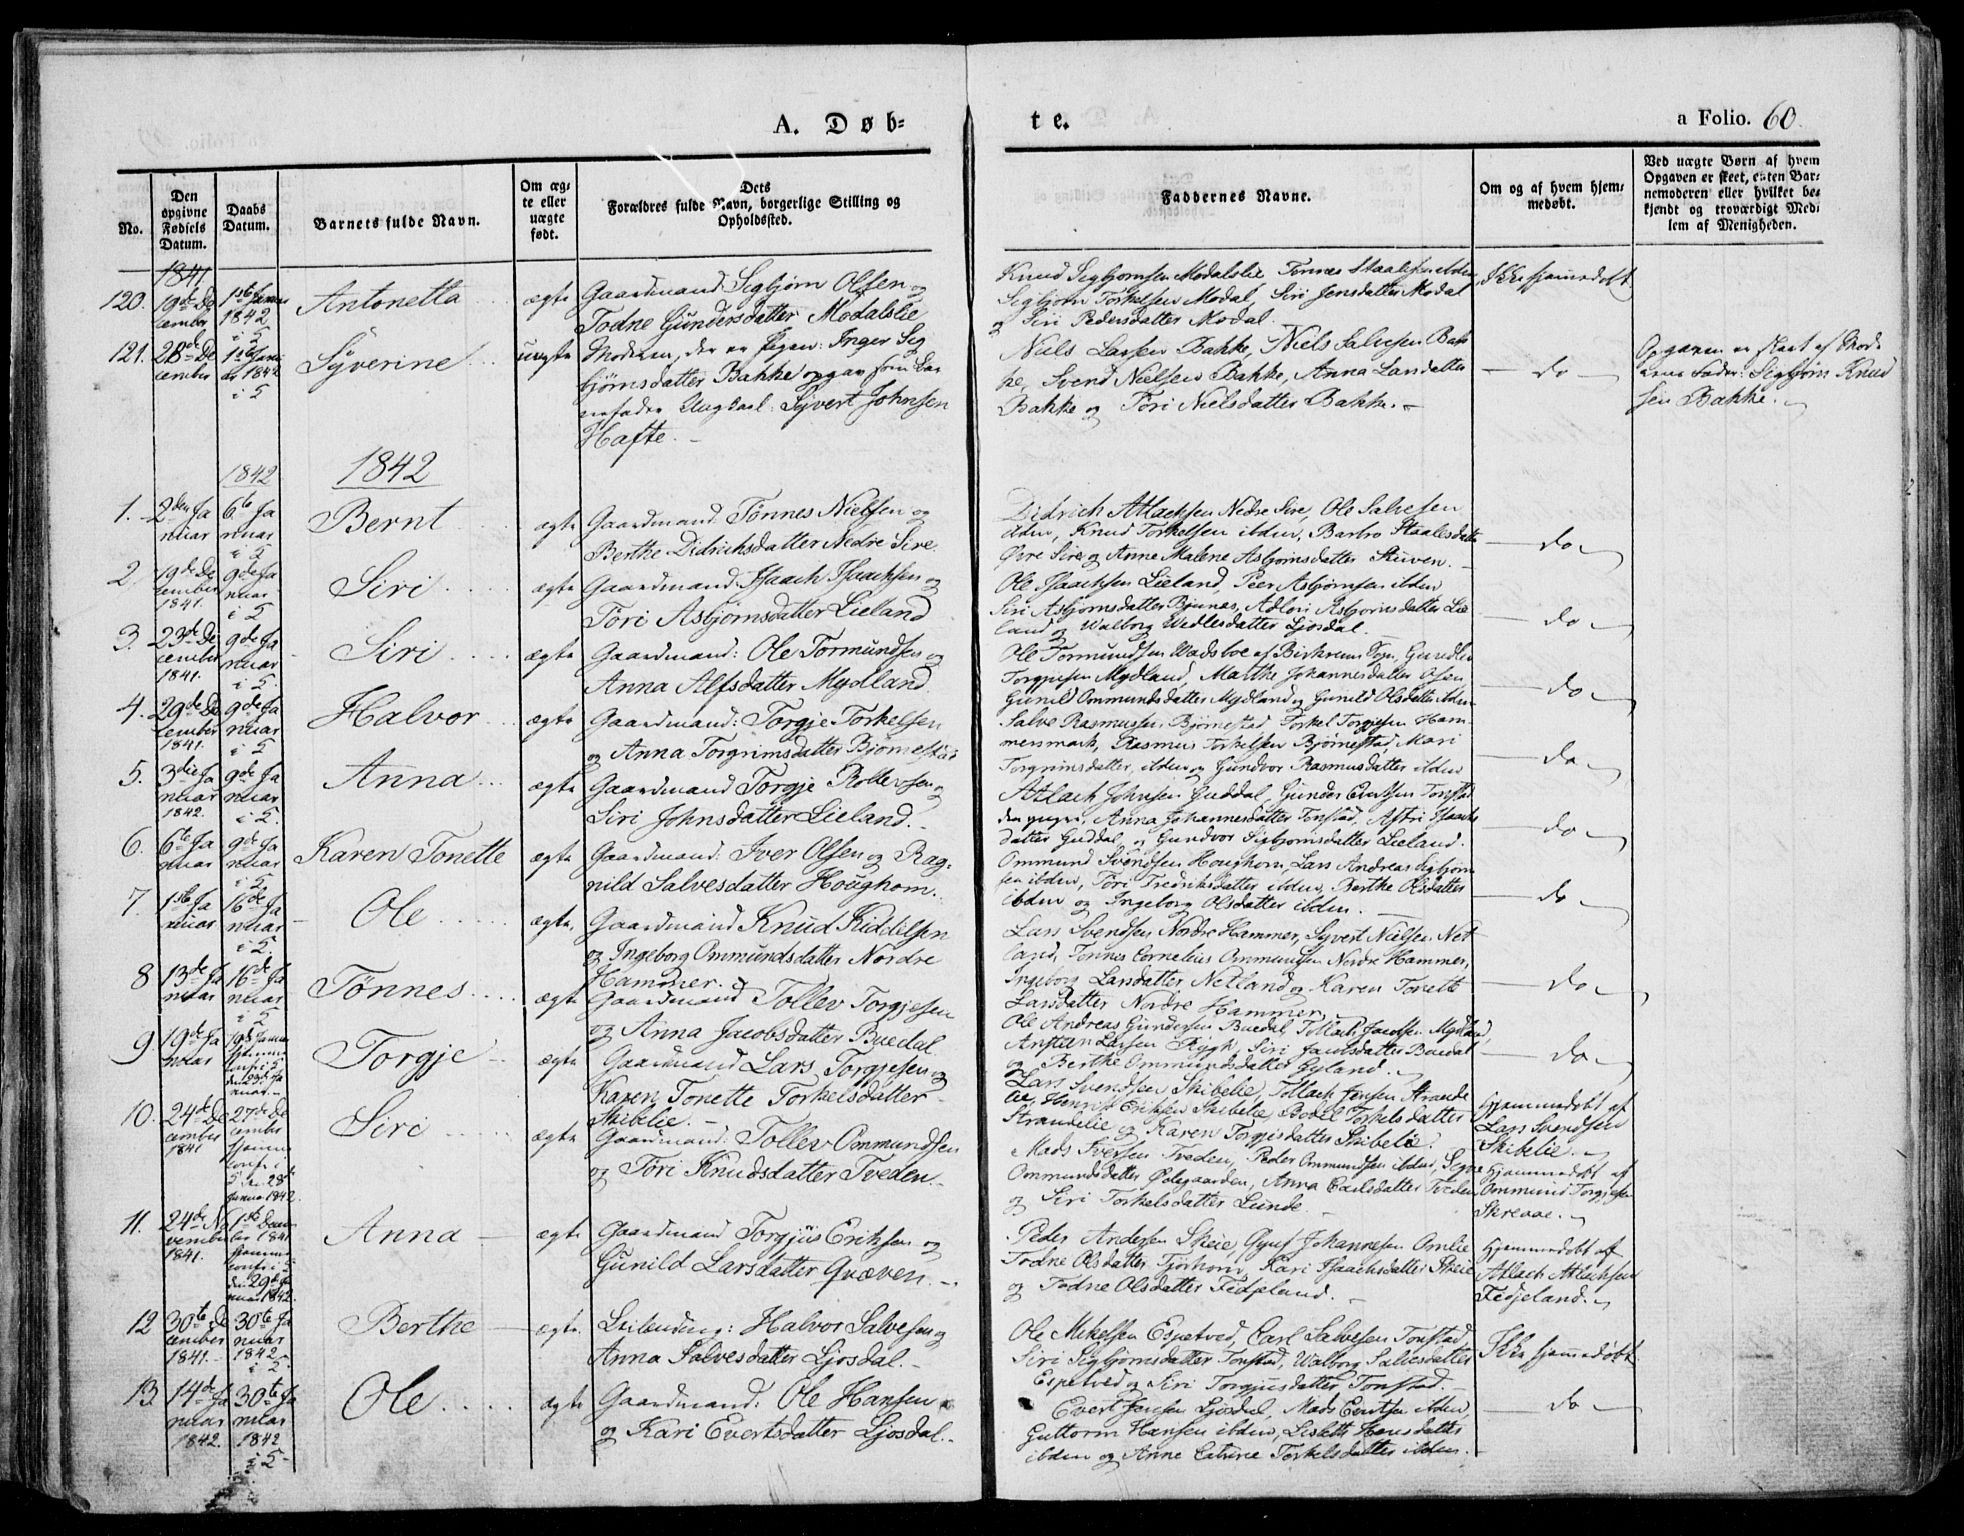 A. Døb-
te.
a Folio. 60.
No.
Den opgivne Fødsels Datum.
Daabs Datum.
Barnets fulde Navn.
Om ægte eller uægte født.
Dets Forældres fulde Navn, borgerlige Stilling og Opholdssted.
Faddernes Navne.
Om og af hvem hjemmedøbt.
Ved uægte Børn af hvem Opgaven er skeet, enten Barnemoderen eller hvilket bekjendt og troværdigt Medlem af Menigheden.
1841
120. 19de December
1ste Januar 1842 i 5
Antonetta
ægte
Gaardmand Sigbjørn Olsen og
Todne Gundersdatter Modalslie
Knud Sigbjørnsen Modalslie, Tønnes Staalesen ibden
Sigbjørn Torkelsen Modal, Siri Jensdatter Modal
og Siri Pedersdatter Modal.
Ikke hjemmedøbt
121. 28de December
1ste Januar 1842 i 5
Syverine
uægte
Moderen, der er Pigen: Inger Sig
bjørnsdatter Bakke opgav som Bar
nefader Ungkarl: Syvert Johnsen
Hafte.
Niels Larsen Bakke, Niels Salvesen Bak
ke, Svend Nielsen Bakke, Anna Larsdatter
Bakke og Tori Nielsdatter Bakke.
do
Opgaven er skeet af Mode
rens Fader: Sigbjørn Knud
sen Bakke.
1842
1842
1. 2den Januar
6te Januar i 5
Bernt
ægte
Gaardmand: Tønnes Nielsen og
Berthe Didrichsdatter Nedre Sire.
Didrich Atlachsen Nedre Sire, Ole Salvesen
ibden, Knud Torkelsen ibden, Barbro Staalesdatter
Øvre Sire og Anne Malene Asbjørnsdatter Stuven.
do
2 19de December 1841.
9de Januar i 5
Siri
ægte
Gaardmand: Isaach Isaachsen og
Tori Asbjørnsdatter Lieland
Ole Isaachsen Lieland, Peer Asbjørnsen ibden
Siri Asbjørnsdatter Bjunes, Adlori Asbjørnsdatter Lie
land og Walborg Wedlesdatter Ljosdal.
do
3. 23de December 1841.
9de Januar i 5
Siri
ægte
Gaardmand: Ole Tormundsen og
Anna Alfsdatter Mydland.
Ole Tormundsen Wadsboe af Birkrem Sogn,
Torgjusen Mydland, Marthe Johannesdatter Osen
Gunild Ommundsdatter Mydland og Gunild Olsdatter ibden
do
4. 29de December 1841.
9de Januar i 5
Halvor
ægte
Gaardmand: Torgje Torkelsen
og Anna Torgrimsdatter Bjørnestad
Salve Rasmussen Bjørnestad Torkel Torgjesen Ham
mersmark, Rasmus Torkelsen Bjørnestad, Mari
Torgrimsdatter ibden og Gundvor Rasmusdatter ibden
do
5. 3die Januar 1842.
9de Januar i 5.
Anna
ægte
Gaardmand Torgje Rollevsen og
Siri Johnsdatter Lieland.
Atlach Johnsen Guddal, Gunder Evertsen Tonstad
den yngre, Anna Johannesdatter Tonstad, Astri Isaachs
datter Guddal, og Gundvor Sigbjørnsdatter Lieland.
do
6. 6te Januar
9de Januar i 5
Karen Tonette
ægte
Gaardmand: Iver Olsen og Rag
nild Salvesdatter Houghom.
Ommund Svendsen Houghom, Lars Andreas Sigbjørn
sen ibden, Tori Fredriksdatter ibden, Berthe Olsdatter
ibden og Ingeborg Olsdatter ibden.
do
7. 1ste Januar
16de Januar i 5
Ole
ægte,
Gaardmand Knud Kiddelsen
og Ingeborg Ommundsdatter Nordre
Hammer.
Lars Svendsen Nordre Hammer, Syvert Nielsen Net
land, Tønnes Cornelius Ommundsen Nordre Hammer,
Ingeborg Larsdatter Netland og Karen Tonette
Larsdatter Nordre Hammer.
do
8 13de Januar
16de Januar i 5
Tønnes
ægte
Gaardmand Tollev Torgjesen
og Anna Jacobsdatter Buedal
Ole Andreas Gundersen Buedal, Tollach Jacobsen Mydland,
Ansteen Larsen Rygh, Siri Jacobsdatter Buedal
og Berthe Ommundsdatter Gyland.
do
9. 19de Januar
19de Januar hjemme conf: i 5 den 23de Januar.
Torgje
ægte
Gaardmand Lars Torgjesen og
Karen Tonette Torkelsdatter
Skibelie.
Lars Svendsen Skibelie, Tollach Jensen Strande
lie, Henrik Eriksen Skibelie, Bodel Torkelsdatter
Strandelie og Karen Torgjesdatter Skibelie.
Hjemmedøbt af
Lars Svendsen
Skibelie.
10. 24de December 1841
27de December hjemme conf: i 5 den 28de Januar 1842.
Siri
ægte
Gaardmand: Tollev Ommundsen
og Tori Knudsdatter Tveden.
Mads Iversen Tveden, Peder Ommundsen ibden, Signe
Ommundsdatter Ølegaarden, Anna Carlsdatter Tveden
og Siri Torkelsdatter Lunde.
Hjemmedøbt af
Ommund Torgjesen
Skreaae.
11. 24de November 1841.
1ste December 1841 hjemme conf: i 5 den 29de Januar 1842.
Anna
ægte
Gaardmand Torgjus Eriksen og
Gunild Larsdatter Qvæven.
Peder Andersen Skeie, Gjert Johannesen Omlie
Todne Olsdatter Tjørhom, Kari Isaachsdatter Skeie
og Todne Olsdatter Fedjeland.
Hjemmedøbt af
Atlach Atlachsen
Fedjeland.
12 30te December 1841.
30te Januar 1842 i 5
Berthe
ægte.
Leilending: Halvor Salvesen og
Anna Salvesdatter Ljosdal.
Ole Mikelsen Espetved, Carl Salvesen Tonstad,
Siri Sigbjørnsdatter Tonstad, Walborg Salvesdatter
Espetved og Siri Torgjusdatter Tonstad.
Ikke hjemmedøbt
13. 14de Januar 1842.
30te Januar 1842 i 5
Ole
ægte
Gaardmand: Ole Hansen
og Kari Evertsdatter Ljosdal.
Evert Jensen Ljosdal, Mads Evertsen ibden,
Guttorm Hansen ibden, Lisbeth Hansdatter
ibden og Anne Catrine Torkelsdatter ibden.
do